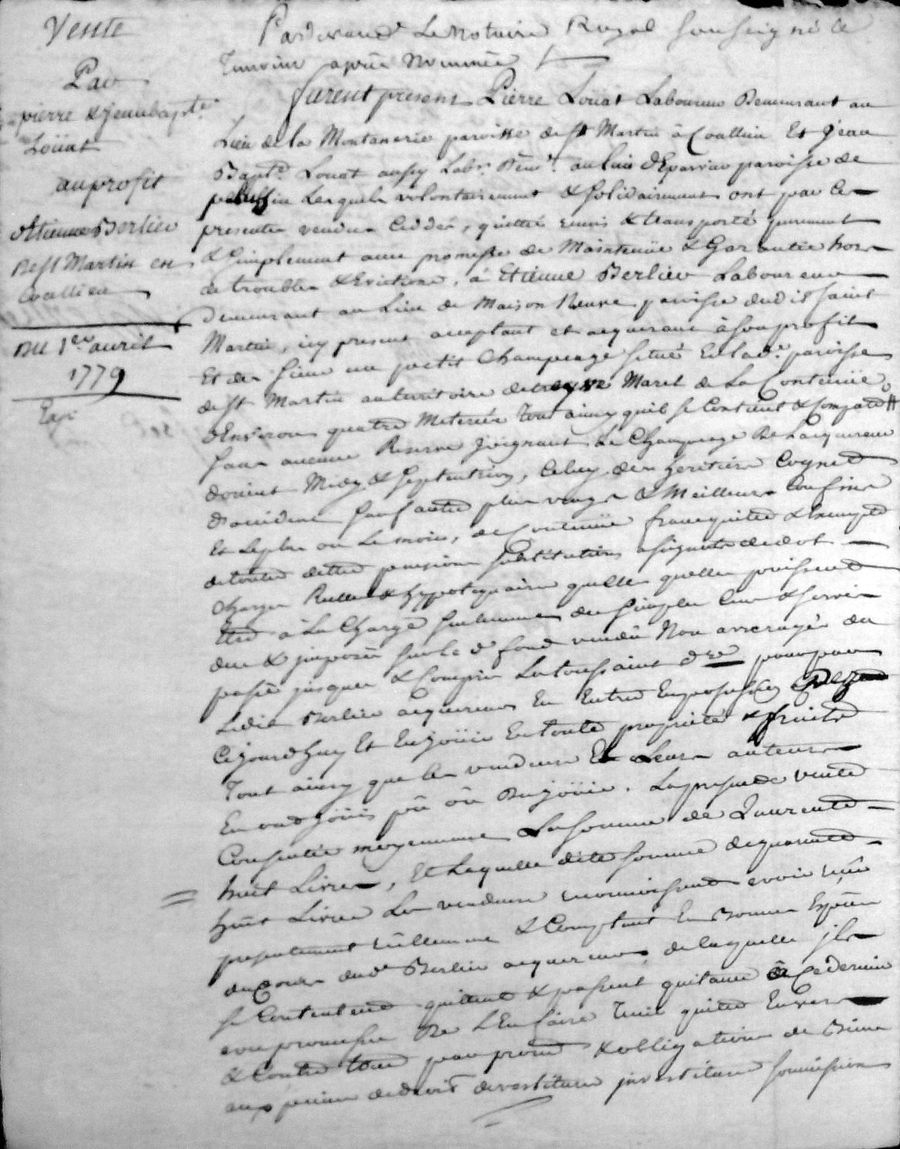 Vente
Par
pierre & jeanbapte
Loüat
au profit
d'Etienne Berlier
de st Martin en
Coallieu
Du 1er avril
1779
Exp
Pardevant Le Notaire Royal soussigné &
Temoins après Nommés
furent presens Pierre Louat Laboureur Demeurant au
Lieu de la Montanerie paroisse de st Martin à Coallieu Et Jean
Bapte Louat aussy Labr Demt au Lieu d'Eparvier paroisse de
pelussin Lesquels volontairement & solidairement ont par Ces
presentes vendu Ceddé, quitté remis & transporté purement
& simplement avec promesse de Maintenüe & Garantie hors
de troubles & Evictions, à Etienne Berlier Laboureur
demeurant au Lieu de Maison Neuve paroisse dudit saint
Martin, icy present acceptant et acquerant à son profit
Et des siens un petit Champeage situé En lad. paroisse
de st Martin au territoire de Marel de La Contenüe
d'Environ quatre Meterées Tout ainsy qu'il se Contient & Comporte
sans aucune Reserve joignant Le Champeage De Lacquereur
d'orient Midy & septentrion, Celuy des heritiers Coignet
d'occident sauf autres plus vrays & Meilleurs Confins
Et Le plus ou Le moins, de Contenüe franc quitte & Exempt
de toutes dettes pensions substitutions assignats de dot
Charges Reelles & hypotequaires quelles quelles puissent
Etre à La Charge seulement des simples Cens & servis
dus & imposés sur led. fond vendu Non arreragés du
passé jusques & Compris La toussaint dre pour par
Ledit Berlier acquereur En Entrer En possession
Cejourdhuy Et En joüir En toute proprieté & fruits
Tout ainsy que les vendeurs Et Leurs auteurs
En ont joüis pû ou Dû joüir. La presente vente
Consentie moyennant La somme de Quarante
huit Livres, Et Laquelle dite somme de quarante
huit Livres Les vendeurs reconnoissent avoir reçu
presentement reellement & Comptant En Bonnes Espèces
de Cours dud. Berlier acquereur, de laquelle ils
se Contentent quittent & passent quitance à Ce dernier
avec promesse De L'En faire Tenir quitte Envers
& Contre tous par promesse & obligations de Biens
aux peines de droit devestiture investiture soumissions